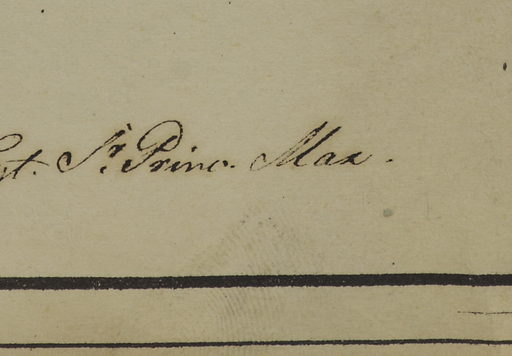 st. Sr. Princ. Max.